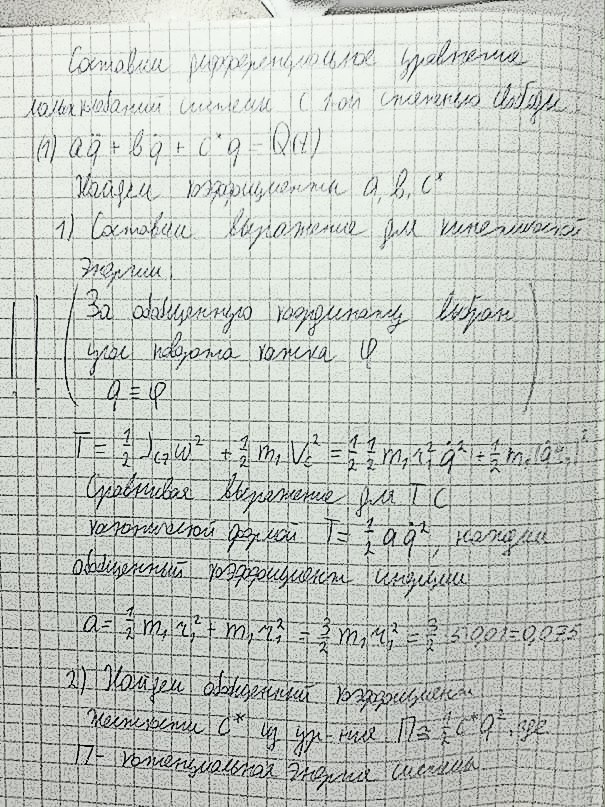 Составим дифференциальное уравнение
малых колебаний системы с 1-ой степенью свободы
(1) aq̈ + bq̇ + c*q = Q(t)
Найдем коэффициенты a, b, c*
1) Составим выражение для кинетической
энергии.
За обобщенную координату выбран
угол поворота катка φ
q = φ
T = 1/2 J ω² + 1/2 m₁ V_c² = 1/2 1/2 m₁ r₁² q̇² + 1/2 m₁ (q̇ r₁)²
Сравнивая выражение для T с
канонической формой T = 1/2 a q̇², находим
обобщенный коэффициент инерции
a = 1/2 m₁ r₁² + m₁ r₁² = 3/2 m₁ r₁² = 3/2 5·0,01 = 0,075
2) Найдем обобщенный коэффициент
жесткости c* из ур-ния П = 1/2 c* q², где
П - потенциальная энергия системы